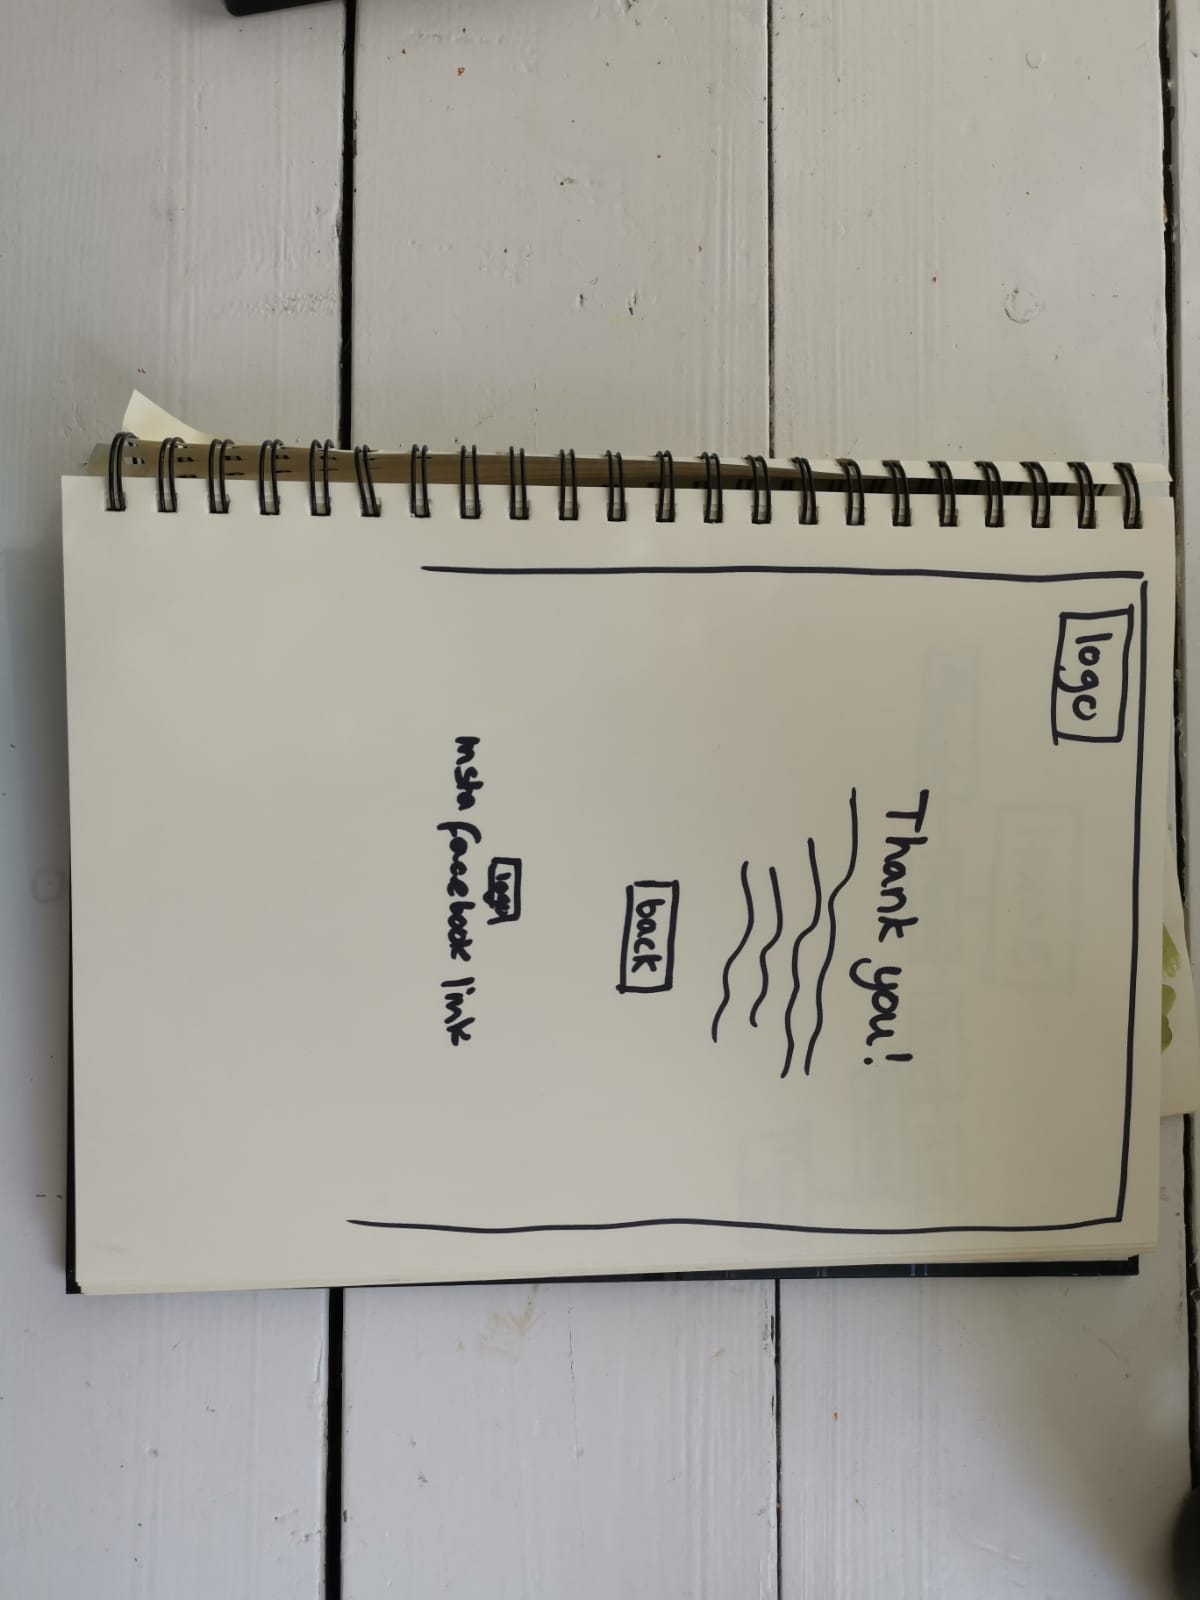 logo
Thank you!
back
logo
Insta facebook link